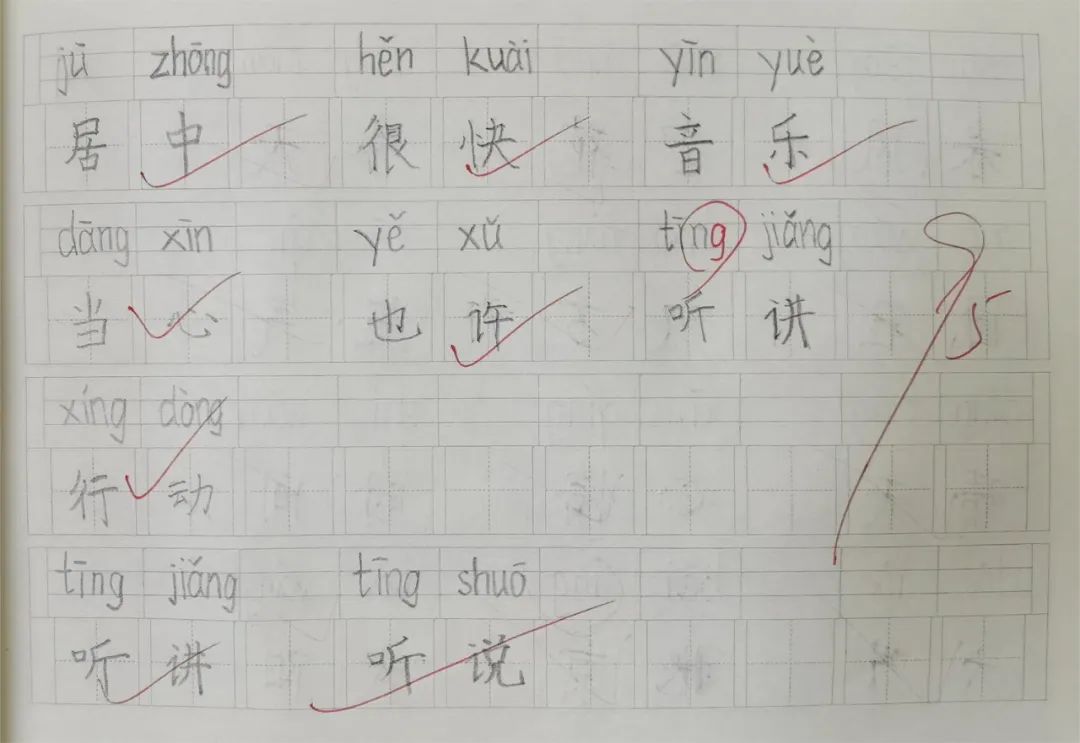 jū zhōng hěn kuài yīn yuè
居中 很快 音乐
dāng xīn yě xǔ tīng jiǎng
当心 也许 听讲
xíng dòng
行动
tīng jiǎng tīng shuō
听讲 听说